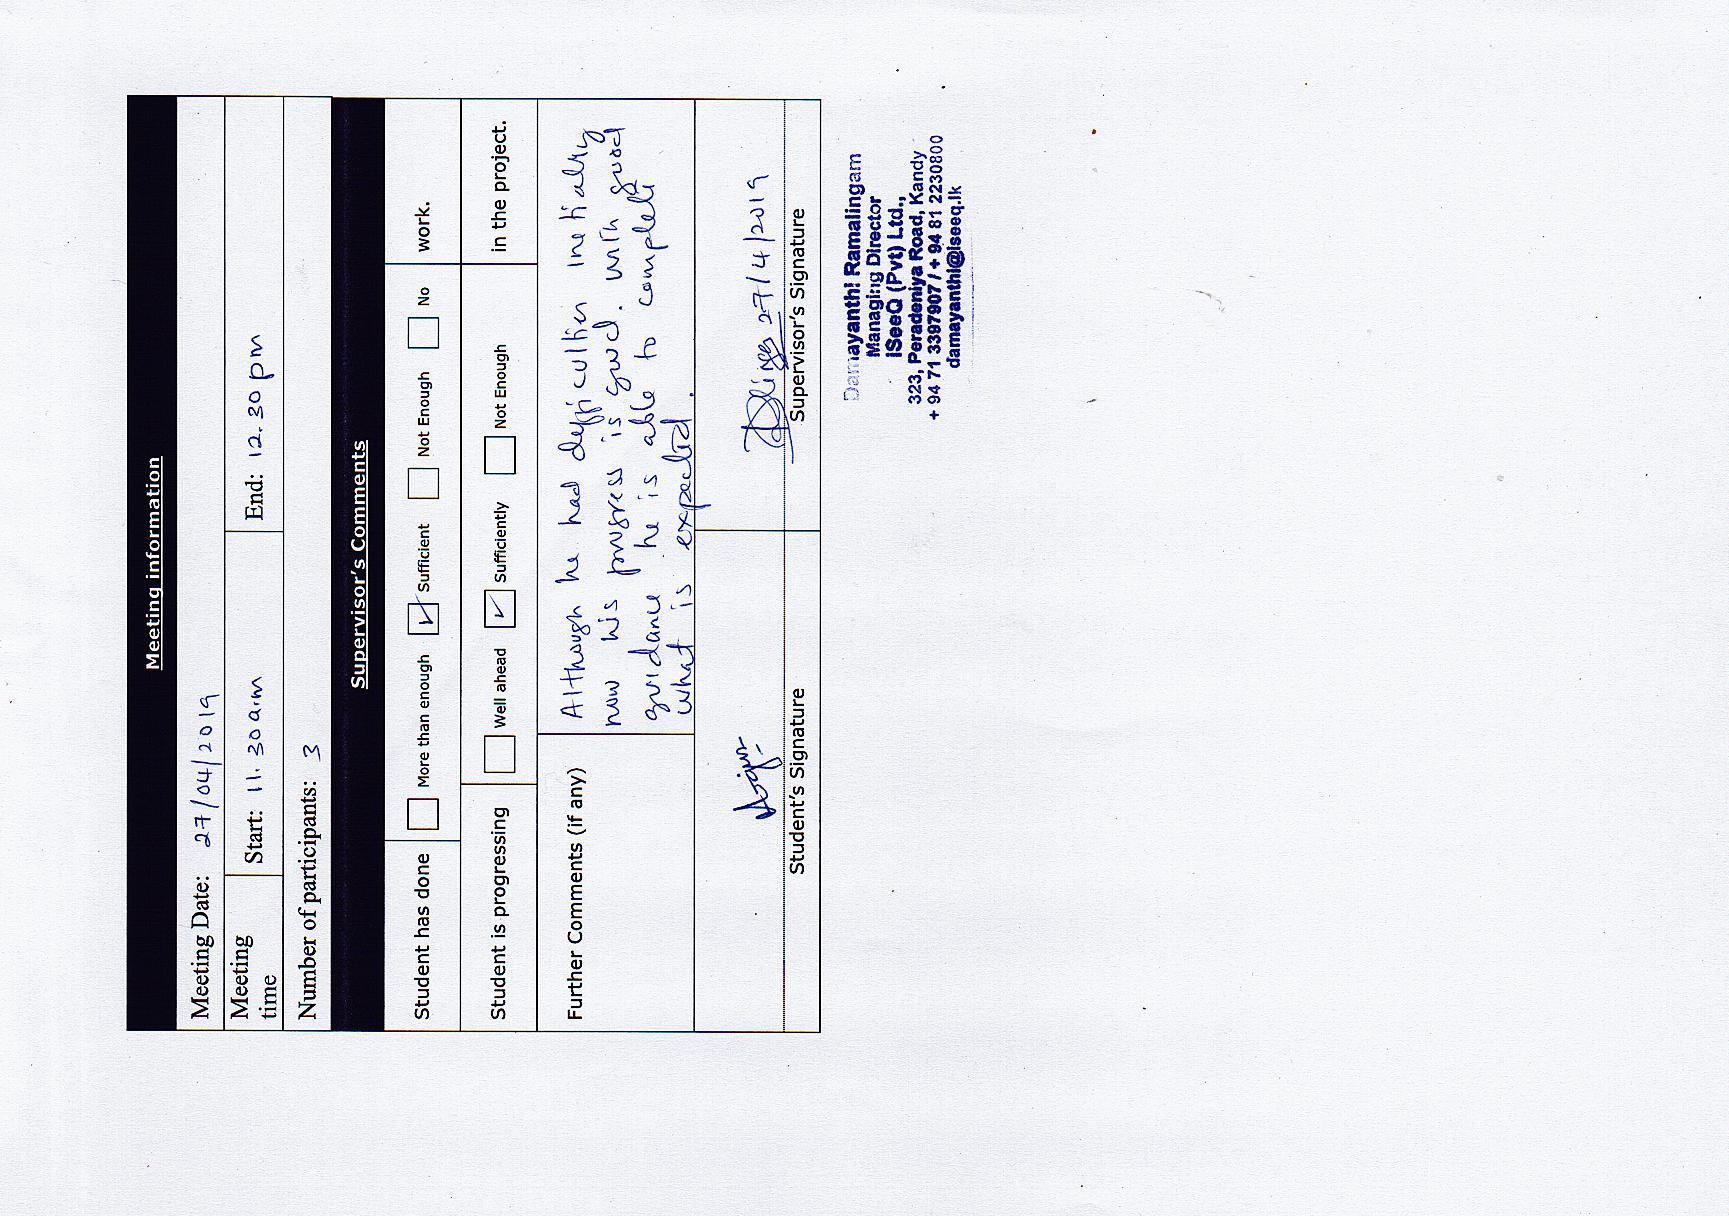 Meeting information
Meeting Date: 27/04/2019
Meeting time Start: 11.30 a.m End: 12.30 pm
Number of participants: 3
Supervisor's Comments
Student has done More than enough Sufficient Not Enough No work.
Student is progressing Well ahead Sufficiently Not Enough in the project.
Further Comments (if any) Although he had difficulties initially
now his progress is good. With good
guidance he is able to complete
what is expected.
27/4/2019
Student's Signature Supervisor's Signature
Damayanthi Ramalingam
Managing Director
iSeeQ (Pvt) Ltd.,
323, Peradeniya Road, Kandy
+ 94 71 3397907 / + 94 81 2230800
damayanthi@iseeq.lk